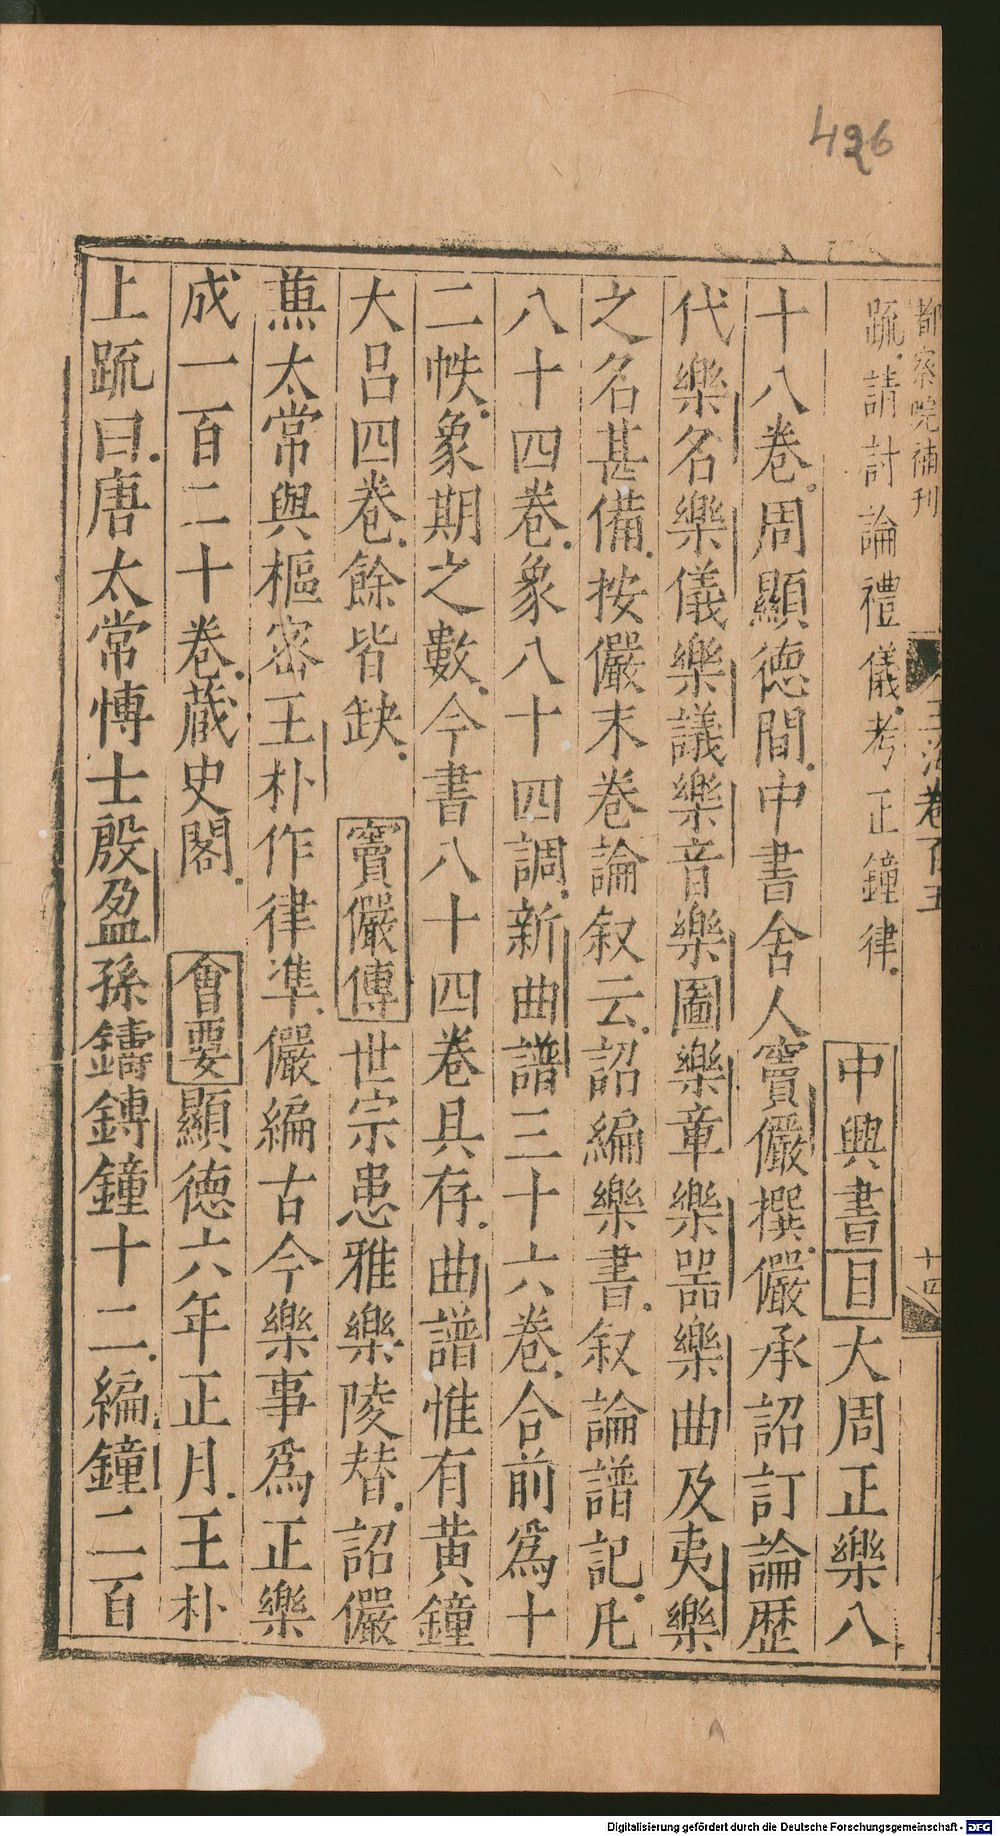 426
都察院補刊
玉海卷百五
十四
疏請討論禮儀考正鐘律
中興書目大周正樂八
十八卷周顯德間中書舍人竇儼撰儼承詔訂論歷
代樂名樂儀樂議樂音樂圖樂章樂器樂曲及夷樂
之名甚備按儼末卷論叙云詔編樂書叙論譜記凡
八十四卷象八十四調新曲譜三十六卷合前爲十
二帙象期之數今書八十四卷具存曲譜惟有黄鐘
大呂四卷餘皆缺竇儼傳世宗患雅樂陵替詔儼
蕉太常與樞密王朴作律凖儼編古今樂事爲正樂
成一百二十卷蔵史閣會要顯德六年正月王朴
上疏曰唐太常博士殷盈孫鑄鎛鐘十二編鐘二百
Digitalisierung gefördert durch die Deutsche Forschungsgemeinschaft - DFG